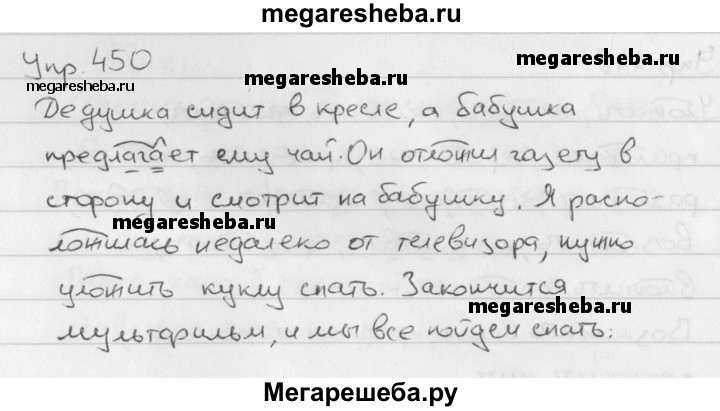 megaresheba.ru
Упр. 450
megaresheba.ru
megaresheba.ru
Дедушка сидит в кресле, а бабушка
предлагает ему чай. Он отложил газету в
сторону и смотрит на бабушку. Я распо-
megaresheba.ru
ложилась недалеко от телевизора, нужно
уложить куклу спать. Закончится
megaresheba.ru
мультфильм, и мы все пойдем спать.
Мегарешеба.ру